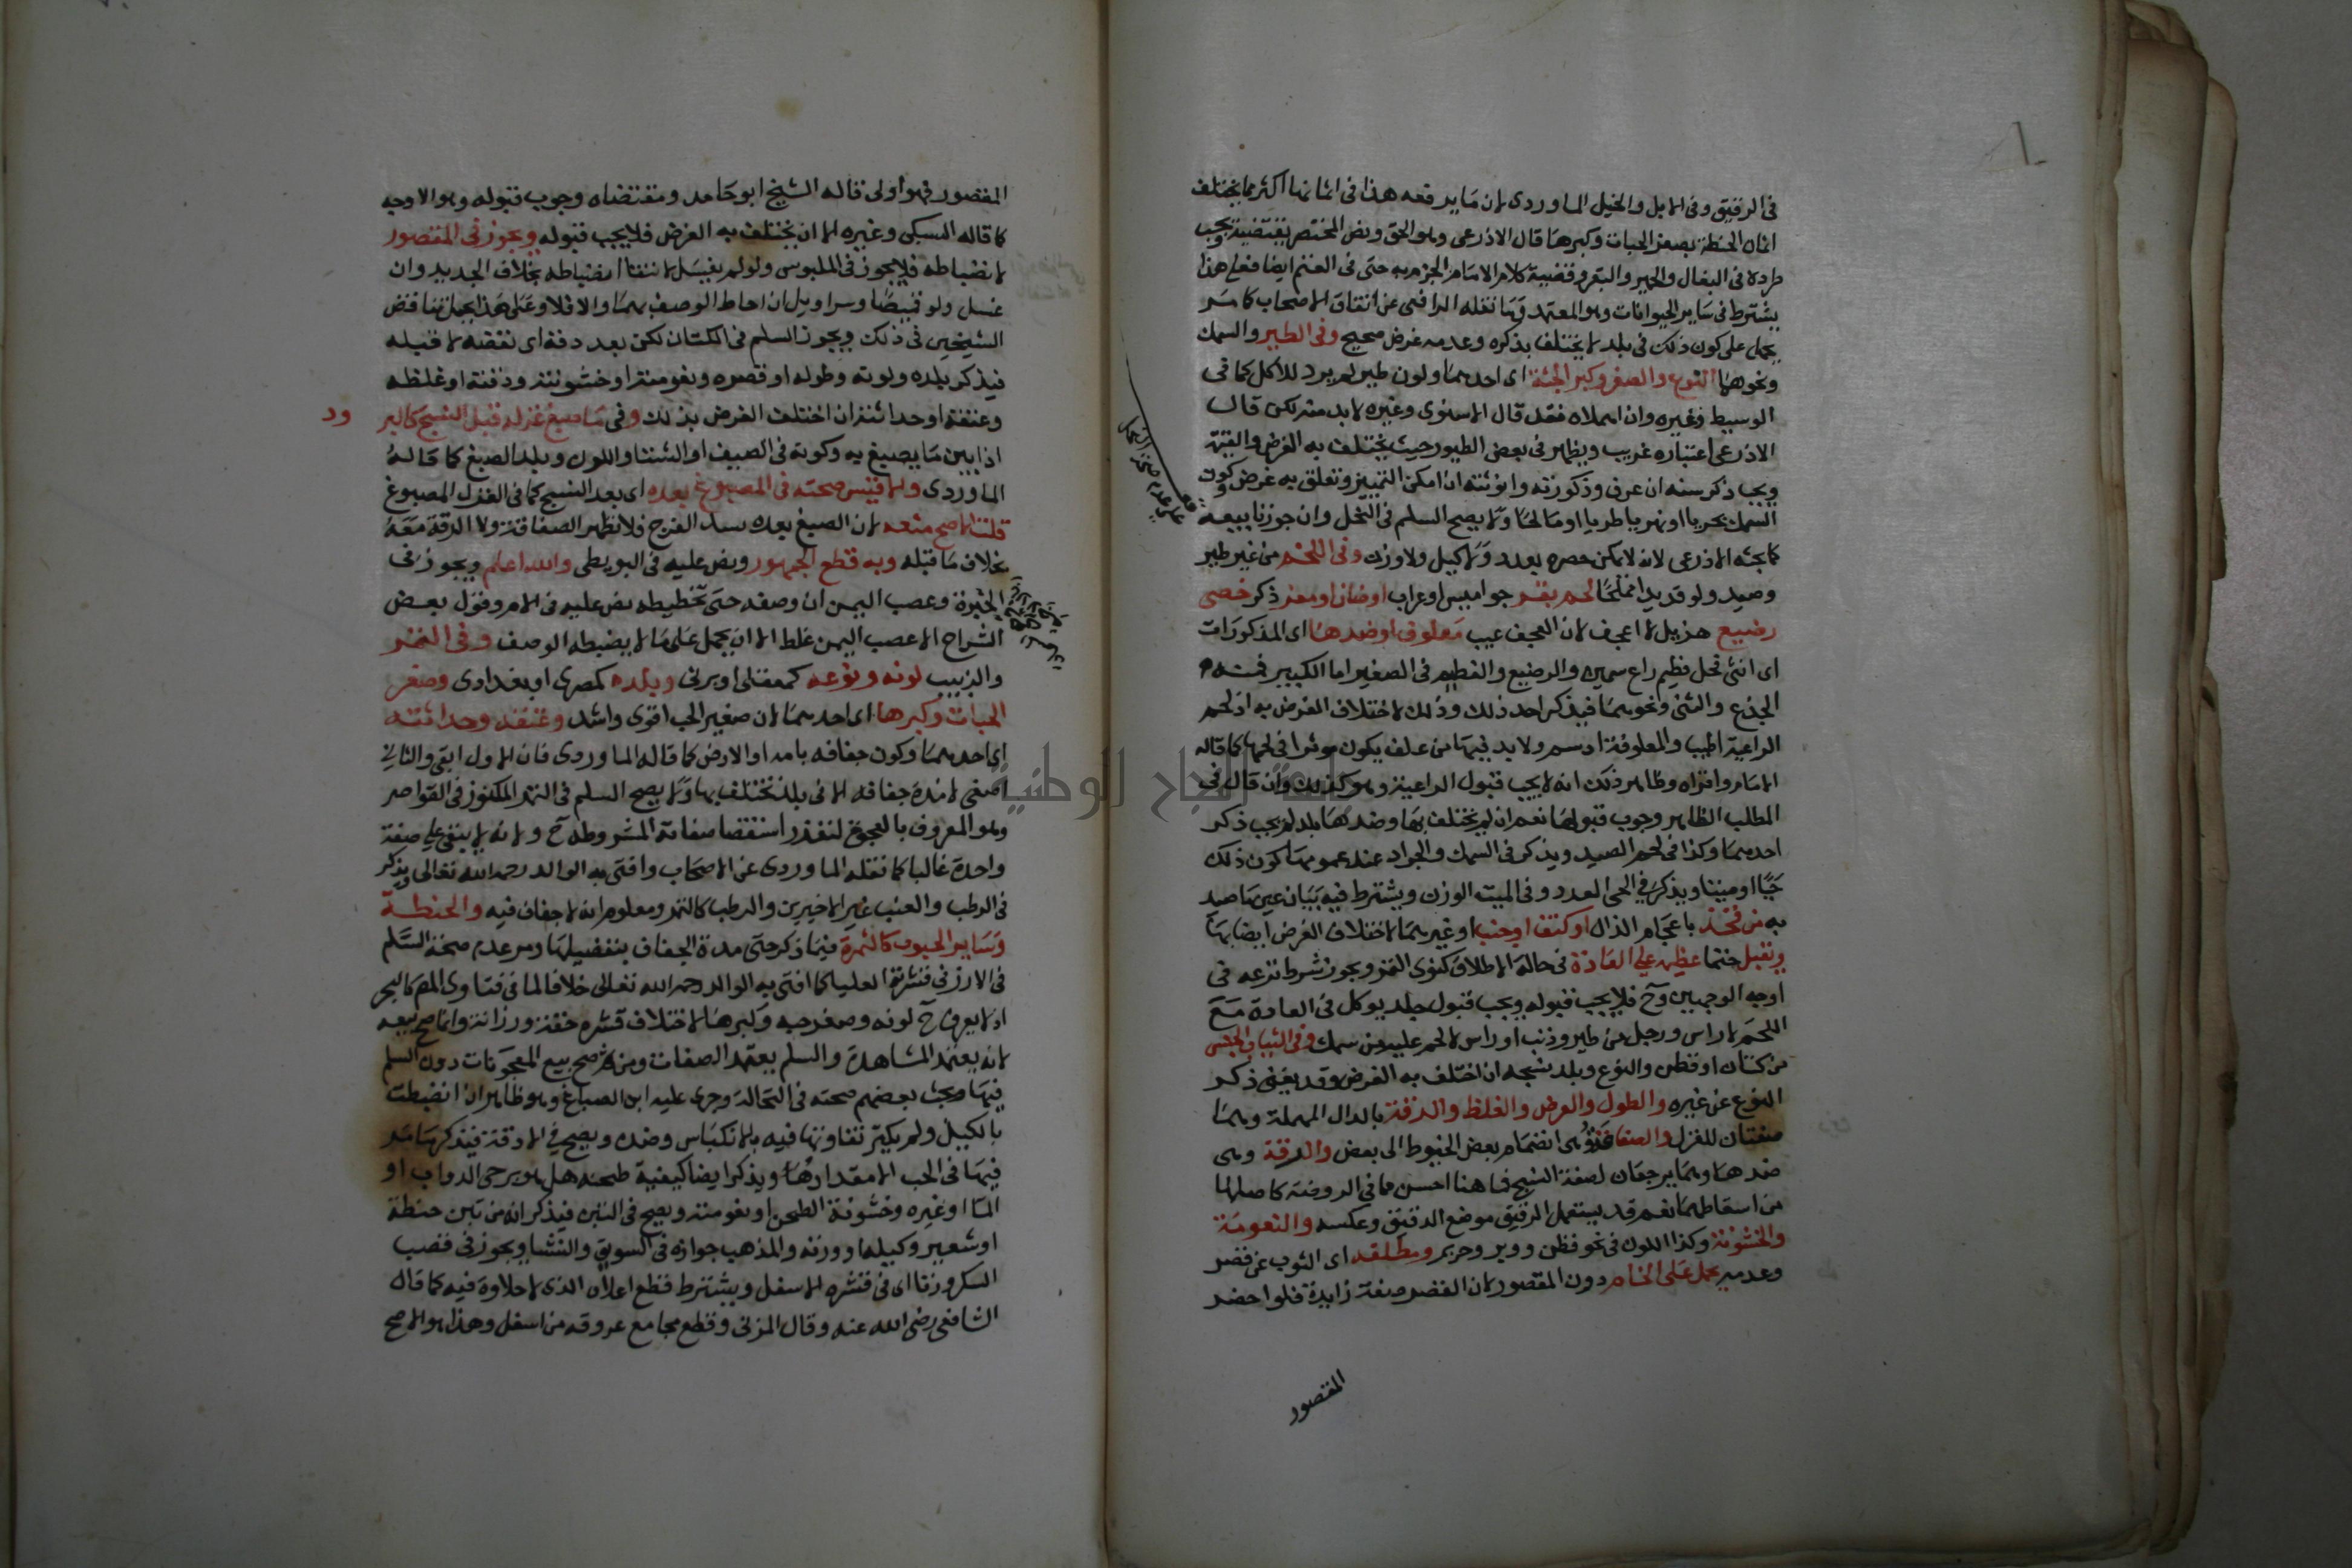 في الرقيق وفي الابل والخيل الماوردي لان ما يدفعه هذا في اثمانها اكثر مما يختلف
اثمان الحنطة بصغر الحبات وكبرها قال الاذرعي وهو الحق ونص المختصر يقتضيه فيجب
طرده في البغال والحمير والبقر وقضية كلام الامام الجزم به حتى في الغنم ايضا فعلى هذا
يشترط في ساير الحيوانات وهو المعتمد وما نقله الرافعي عن اتفاق الاصحاب كما مر
يحمل على كون ذلك في بلد لا يختلف بذكره وعدمه غرض صحيح وفي الطير والسمك
ونحوهما النوع والصغر وكبر الجثة اي احدهما ولون طير لم يرد للاكل كما في
الوسيط وغيره وان اهملاه فقد قال الاسنوي وغيره لا بد منه لكن قال
الاذرعي اعتباره غريب ويظهر في بعض الطيور حيث يختلف به الغرض والقيمة
ويجب ذكر سنه ان عرف وذكورته وانوثته ان امكن التمييز وتعلق به غرض وكون
السمك بحريا او نهريا طريا او مالحا ولا يصح السلم في النحل وان جوزنا بيعه
كما بحثه الاذرعي لانه لا يمكن حصره بعدد ولا كيل ولا وزن وفي اللحم من غير طير
وصيد ولو قديدا مملحا لحم بقر جواميس او عراب او ضان او معز ذكر خصي
رضيع هزيل لا اعجف لان العجف عيب معلوف او ضدها اي المذكورات
اي انثى فحل فطيم راع سمين والرضيع والفطيم في الصغير اما الكبير فمنه
الجذع والثني ونحوهما فيذكر احد ذلك وذلك لاختلاف الغرض به اذ لحم
الراعية اطيب والمعلوفة ادسم ولا بد فيها من علف يكون موثرا في لحمها كما قاله
الامام واقراه وظاهر ذلك انه لا يجب قبول الراعية وهو كذلك وان قال في
المطلب الظاهر وجوب قبولها نعم ان لم يختلف بها وضدها بلد لم يجب ذكر
احدهما وكذا في لحم الصيد ويذكر في السمك والجراد عند عمومهما كون ذلك
حيا او ميتا ويذكر في الحي العدد وفي الميت الوزن ويشترط فيه بيان عين ما صيد
به من فخذ باعجام الذال او كتف او جنب او غيرهما لاختلاف الغرض ايضا بها
ويقبل حتما عظم على العادة في حالة الاطلاق كنوى التمر ويجوز شرط نزعه في
اوجه الوجهين وح فلا يجب قبوله ويجب قبول جلد يوكل في العادة مع
اللحم لا راس ورجل من طير وذنب او راس لا لحم عليه من سمك وفي الثياب الجنس
من كتان او قطن والنوع وبلد نسجه ان اختلف به الغرض وقد يغني ذكر
النوع عن غيره والطول والعرض والغلظ والدقة بالدال المهملة وهما
صفتان للغزل والصفاقة وهي انضمام بعض الخيوط الى بعض والرقة وهي
ضدها وهما يرجعان لصفة النسج فما هنا احسن مما في الروضة كاصلها
من اسقاطهما نعم قد يستعمل الرقيق موضع الدقيق وعكسه والنعومة
والخشونة وكذا اللون في نحو قطن ووبر وحرير ومطلقه اي الثوب عن قصر
وعدمه يحمل على الخام دون المقصور لان القصر صفة زايدة فلو احضر
المقصور
المقصور فهو اولى قاله الشيخ ابو حامد ومقتضاه وجوب قبوله وهو الاوجه
كما قاله السبكي وغيره الا ان يختلف به الغرض فلا يجب قبوله ويجوز في المقصور
لانضباطه فلا يجوز في الملبوس ولو لم يغسل لانتفاء انضباطه بخلاف الجديد وان
غسل ولو قميصا وسراويل ان احاط الوصف بهما والا فلا وعلى هذا يحمل تناقض
الشيخين في ذلك ويجوز السلم في الكتان لكن بعد دقه اي نفضه لا قبله
فيذكر بلده ولونه وطوله او قصره ونعومته او خشونته ودقته او غلظه
وعتقه او حداثته ان اختلف الغرض بذلك وفي ما صبغ غزله قبل النسج كالبر
ود
اذا بين ما يصبغ به وكونه في الصيف او الشتا واللون وبلد الصبغ كما قاله
الماوردي والاقيس صحته في المصبوغ بعده اي بعد النسج كما في الغزل المصبوغ
قلت الاصح منعه لان الصبغ بعده يسد الفرج فلا تظهر الصفاقة ولا الرقة معه
بخلاف ما قبله وبه قطع الجمهور ونص عليه في البويطي والله اعلم ويجوز في
الحبرة وعصب اليمن ان وصفه حتى تخطيطه نص عليه في الام وقول بعض
الشراح لا عصب اليمن غلط الا ان يحمل على ما لا يضبطه الوصف وفي التمر
والزبيب لونه ونوعه كمعقلي او برني وبلده كمصري او بغدادي وصغر
الحبات وكبرها اي احدهما لان صغير الحب اقوى واشد وعتقه وحداثته
اي احدهما وكون جفافه بامه او الارض كما قاله الماوردي فان الاول ابقى والثاني
اصفى لا مدة جفافه الا في بلد تختلف بها ولا يصح السلم في التمر المكنوز في القواصر
وهو المعروف بالعجوة لتعذر استقصا صفاته المشروطة ح ولانه لا يبقى على صفة
واحدة غالبا كما نقله الماوردي عن الاصحاب وافتى به الوالد رحمه الله تعالى ويذكر
في الرطب والعنب غير الاخيرين والرطب كالتمر ومعلوم انه لا جفاف فيه والحنطة
وساير الحبوب كالثمرة فيما ذكر حتى مدة الجفاف بتفصيلها ومر عدم صحة السلم
في الارز في قشرته العليا كما افتى به الوالد رحمه الله تعالى خلافا لما في فتاوى المص كالبحر
اذ لا يعرف ح لونه وصغر حبه وكبرها لاختلاف قشره خفة ورزانة وانما صح بيعه
لانه يعتمد المشاهدة والسلم يعتمد الصفات ومن ثم صح بيع المعجونات دون السلم
فيها وبحث بعضهم صحته في النخالة وجرى عليه ابن الصباغ وهو ظاهر ان انضبطت
بالكيل ولم يكثر تفاوتها فيه بالانكباس وضده ويصح في الادقة فيذكر ما مر
فيها في الحب الا مقدارها ويذكر ايضا كيفية طحنه هل هو برحى الدواب او
الماء او غيره وخشونة الطحن او نعومته ويصح في التبن فيذكر انه من تبن حنطة
او شعير وكيله او وزنه والمذهب جوازه في السويق والنشا ويجوز في قصب
السكر وزنا اي في قشره الاسفل ويشترط قطع اعلاه الذي لا حلاوة فيه كما قال
الشافعي رضي الله عنه وقال المزني وقطع مجامع عروقه من اسفل وهذا هو الاصح
جامعة النجاح الوطنية